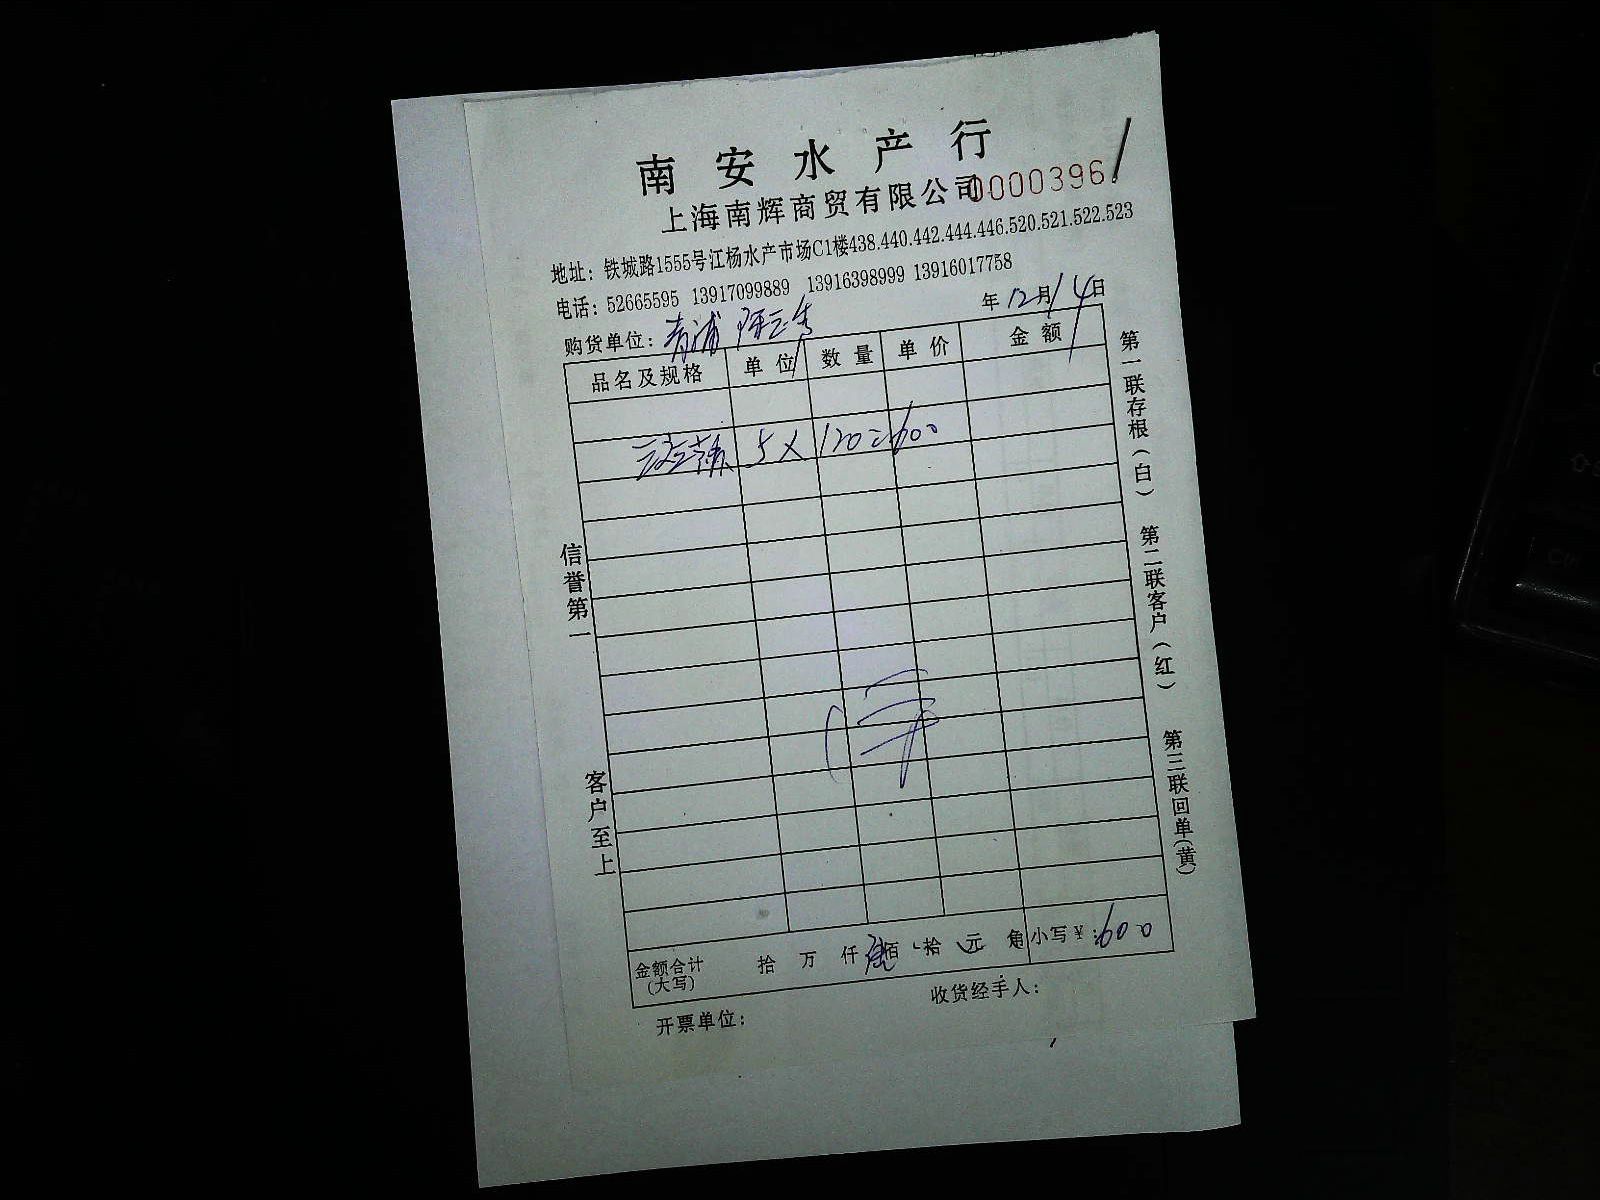 南安水产行
上海南辉商贸有限公司 0000396
地址：铁城路1555号江杨水产市场C1楼438.440.442.444.446.520.521.522.523
电话：52665595 13917099889 13916398999 13916017758
年12月14日
购货单位：青浦
品名及规格 单位 数量 单价 金额
5X 120=600
信誉第一
客户至上
第一联存根（白） 第二联客户（红） 第三联回单（黄）
金额合计（大写） 拾 万 仟 佰 拾 元 角 小写￥：600
收货经手人：
开票单位：